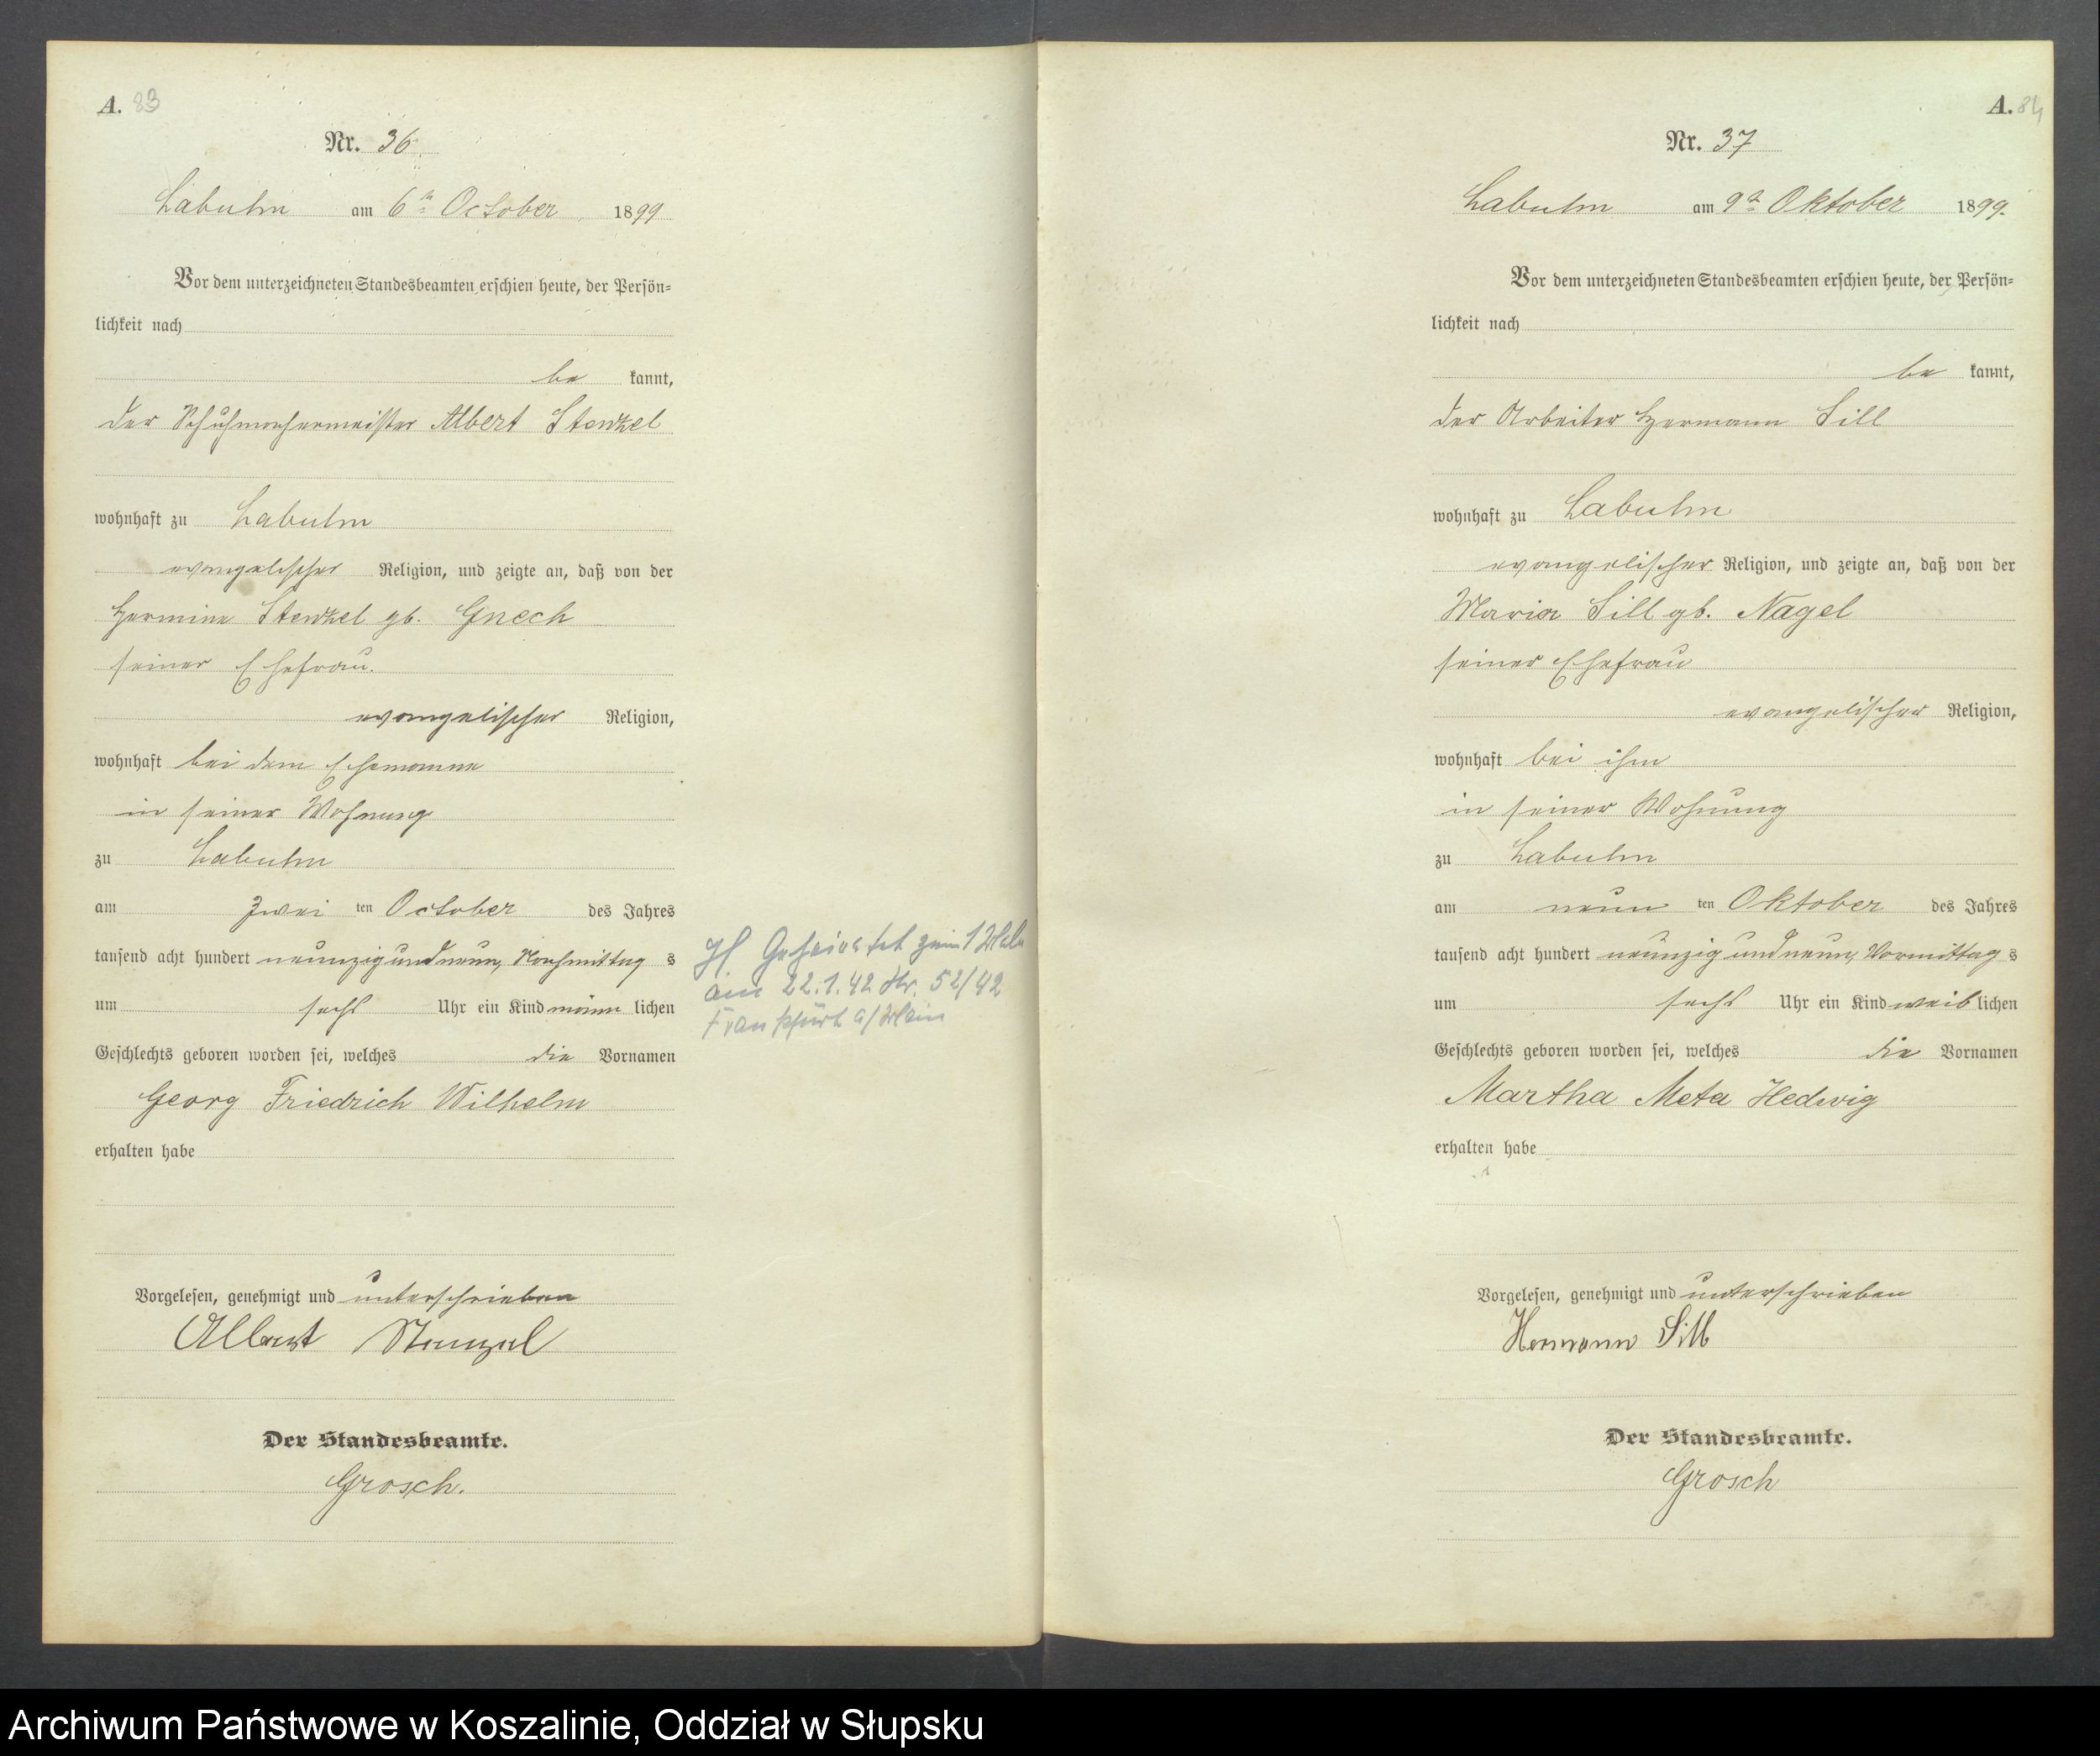 A. 83
Nr. 36.
Labuhn am 6ten October 1899
Vor dem unterzeichneten Standesbeamten erschien heute, der Persön=
lichkeit nach
be kannt,
der Schuhmachermeister Albert Stenzel
wohnhaft zu Labuhn
evangelischer Religion, und zeigte an, daß von der
Hermine Stenzel gb. Gnech
seiner Ehefrau.
evangelischer Religion,
wohnhaft bei dem Ehemanne
in seiner Wohnung
zu Labuhn
am zwei ten October des Jahres
tausend acht hundert neunzig und neun, Nachmittag s
um sechs Uhr ein Kind männ lichen
Geschlechts geboren worden sei, welches die Vornamen
Georg Friedrich Wilhelm
erhalten habe
Vorgelesen, genehmigt und unterschrieben
Albert Stenzel
Der Standesbeamte.
Grosch.
Geheiratet zum 1 Male
am 22.1.42 Nr. 52/42
Frankfurt a/Main
A. 84
Nr. 37
Labuhn am 9ten Oktober 1899.
Vor dem unterzeichneten Standesbeamten erschien heute, der Persön=
lichkeit nach
be kannt,
der Arbeiter Hermann Sill
wohnhaft zu Labuhn
evangelischer Religion, und zeigte an, daß von der
Maria Sill gb. Nagel
seiner Ehefrau
evangelischer Religion,
wohnhaft bei ihm
in seiner Wohnung
zu Labuhn
am neun ten Oktober des Jahres
tausend acht hundert neunzig und neun, Vormittag s
um sechs Uhr ein Kind weib lichen
Geschlechts geboren worden sei, welches die Vornamen
Martha Meta Hedwig
erhalten habe
Vorgelesen, genehmigt und unterschrieben
Hermann Sill
Der Standesbeamte.
Grosch
Archiwum Państwowe w Koszalinie, Oddział w Słupsku